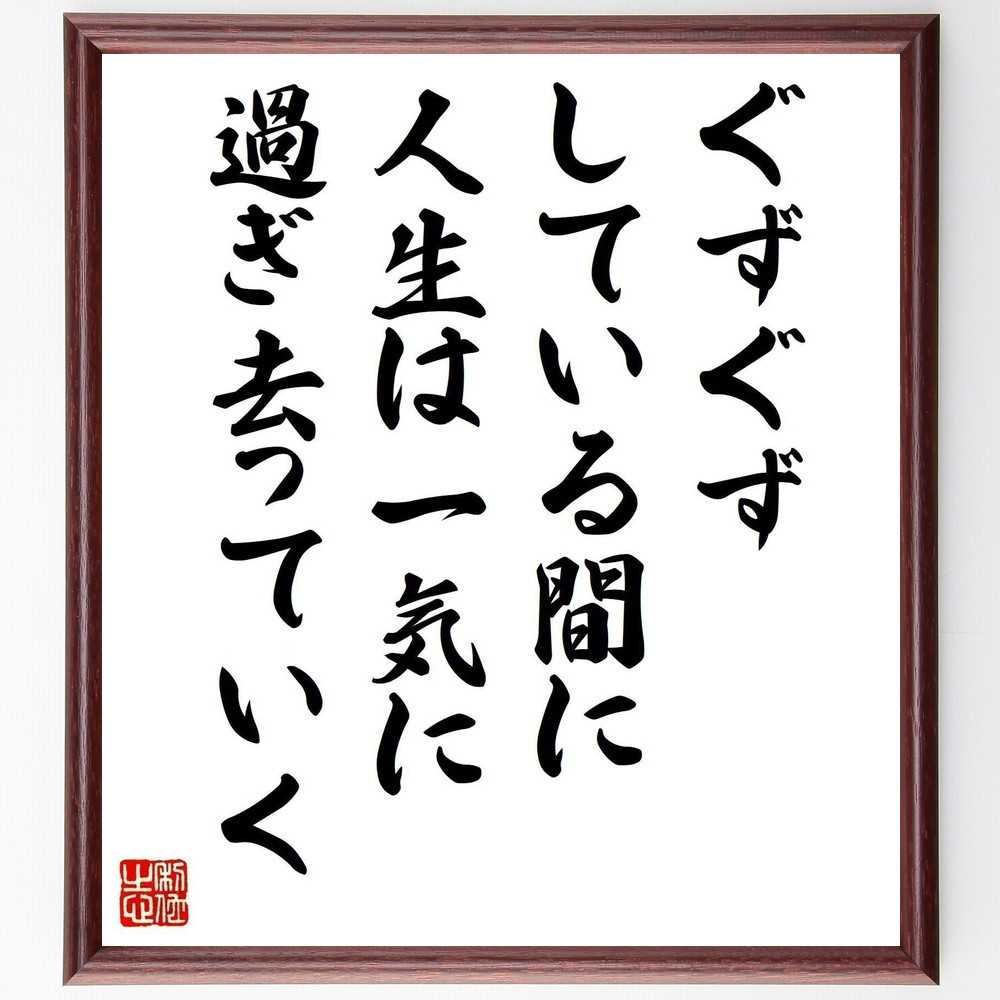 ぐずぐず
している間に
人生は一気に
過ぎ去っていく